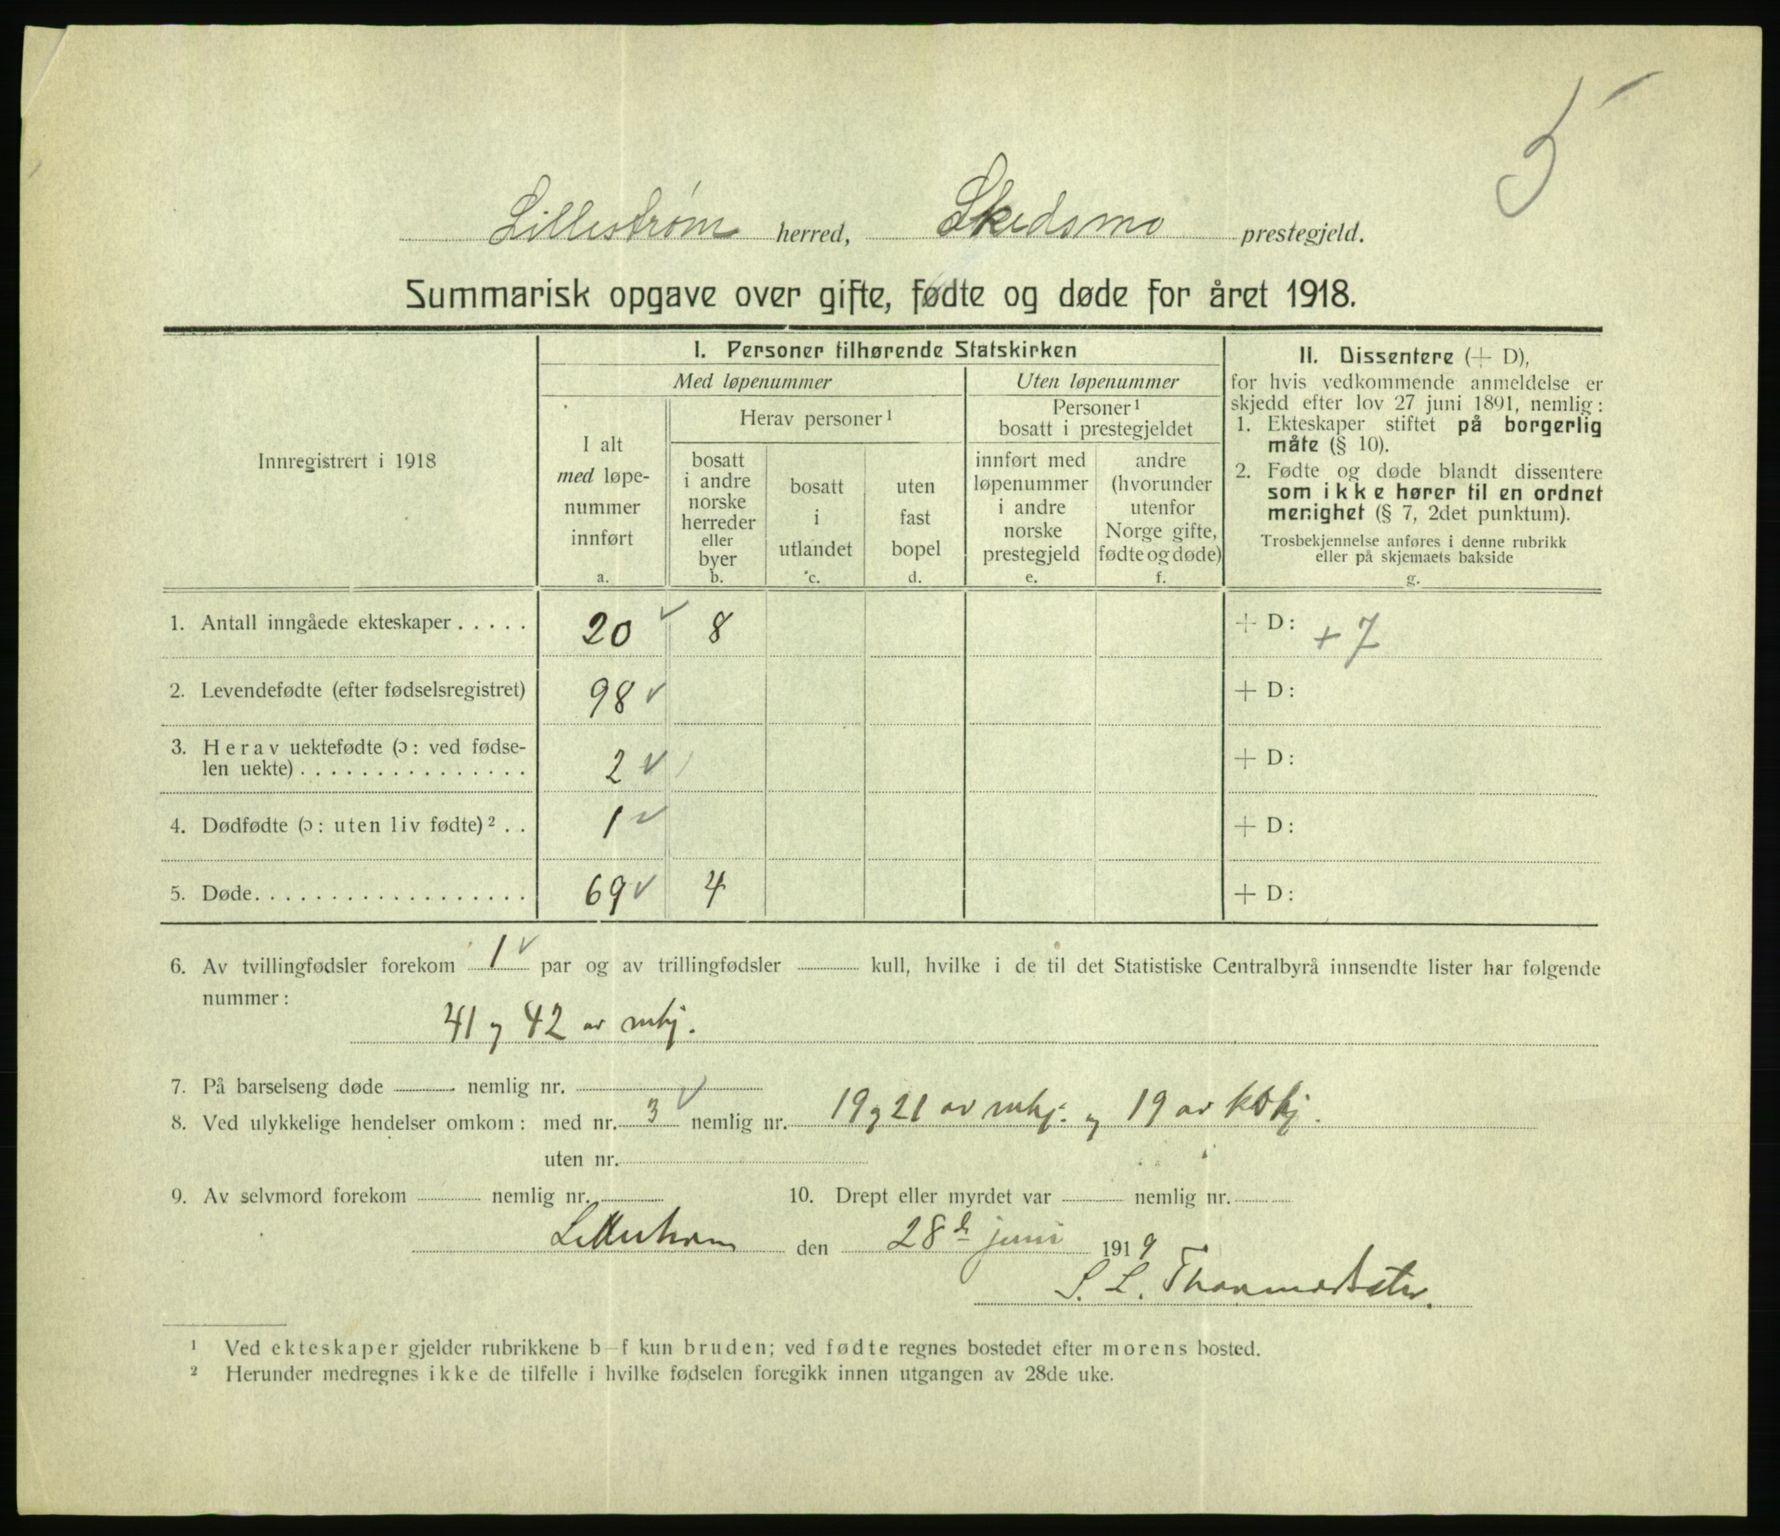 5
Lillestrøm herred, Skedsmo prestegjeld.
Summarisk opgave over gifte, fødte og døde for året 1918.
Innregistrert i 1918
I. Personer tilhørende Statskirken
Med løpenummer
Uten løpenummer
I alt
med løpe-
nummer
innført
a.
Herav personer ¹
bosatt
i andre
norske
herreder
eller
byer
b.
bosatt
i
utlandet
c.
uten
fast
bopel
d.
Personer ¹
bosatt i prestegjeldet
innført med
løpenummer
i andre
norske
prestegjeld
e.
andre
(hvorunder
utenfor
Norge gifte,
fødte og døde)
f.
II. Dissentere (+ D),
for hvis vedkommende anmeldelse er
skjedd efter lov 27 juni 1891, nemlig:
1. Ekteskaper stiftet på borgerlig
måte (§ 10).
2. Fødte og døde blandt dissentere
som ikke hører til en ordnet
menighet (§ 7, 2det punktum).
Trosbekjennelse anføres i denne rubrikk
eller på skjemaets bakside
g.
1. Antall inngåede ekteskaper ..... 20 ✓ 8 + D: + 7
2. Levendefødte (efter fødselsregistret) 98 ✓ + D:
3. Herav uektefødte (ɔ: ved fødse-
len uekte) ............... 2 ✓ + D:
4. Dødfødte (ɔ: uten liv fødte) ² .. 1 ✓ + D:
5. Døde.................. 69 ✓ 4 + D:
6. Av tvillingfødsler forekom 1 ✓ par og av trillingfødsler ........ kull, hvilke i de til det Statistiske Centralbyrå innsendte lister har følgende
nummer:
41 og 42 av mkj.
7. På barselseng døde ........ nemlig nr. ........
8. Ved ulykkelige hendelser omkom: med nr. 3 ✓ nemlig nr. 19 og 21 av mkj. og 19 av kvkj.
uten nr. ........
9. Av selvmord forekom ........ nemlig nr. ........ 10. Drept eller myrdet var ........ nemlig nr. ........
Lillestrøm den 28de juni 1919
S. L.
¹ Ved ekteskaper gjelder rubrikkene b–f kun bruden; ved fødte regnes bostedet efter morens bosted.
² Herunder medregnes ikke de tilfelle i hvilke fødselen foregikk innen utgangen av 28de uke.